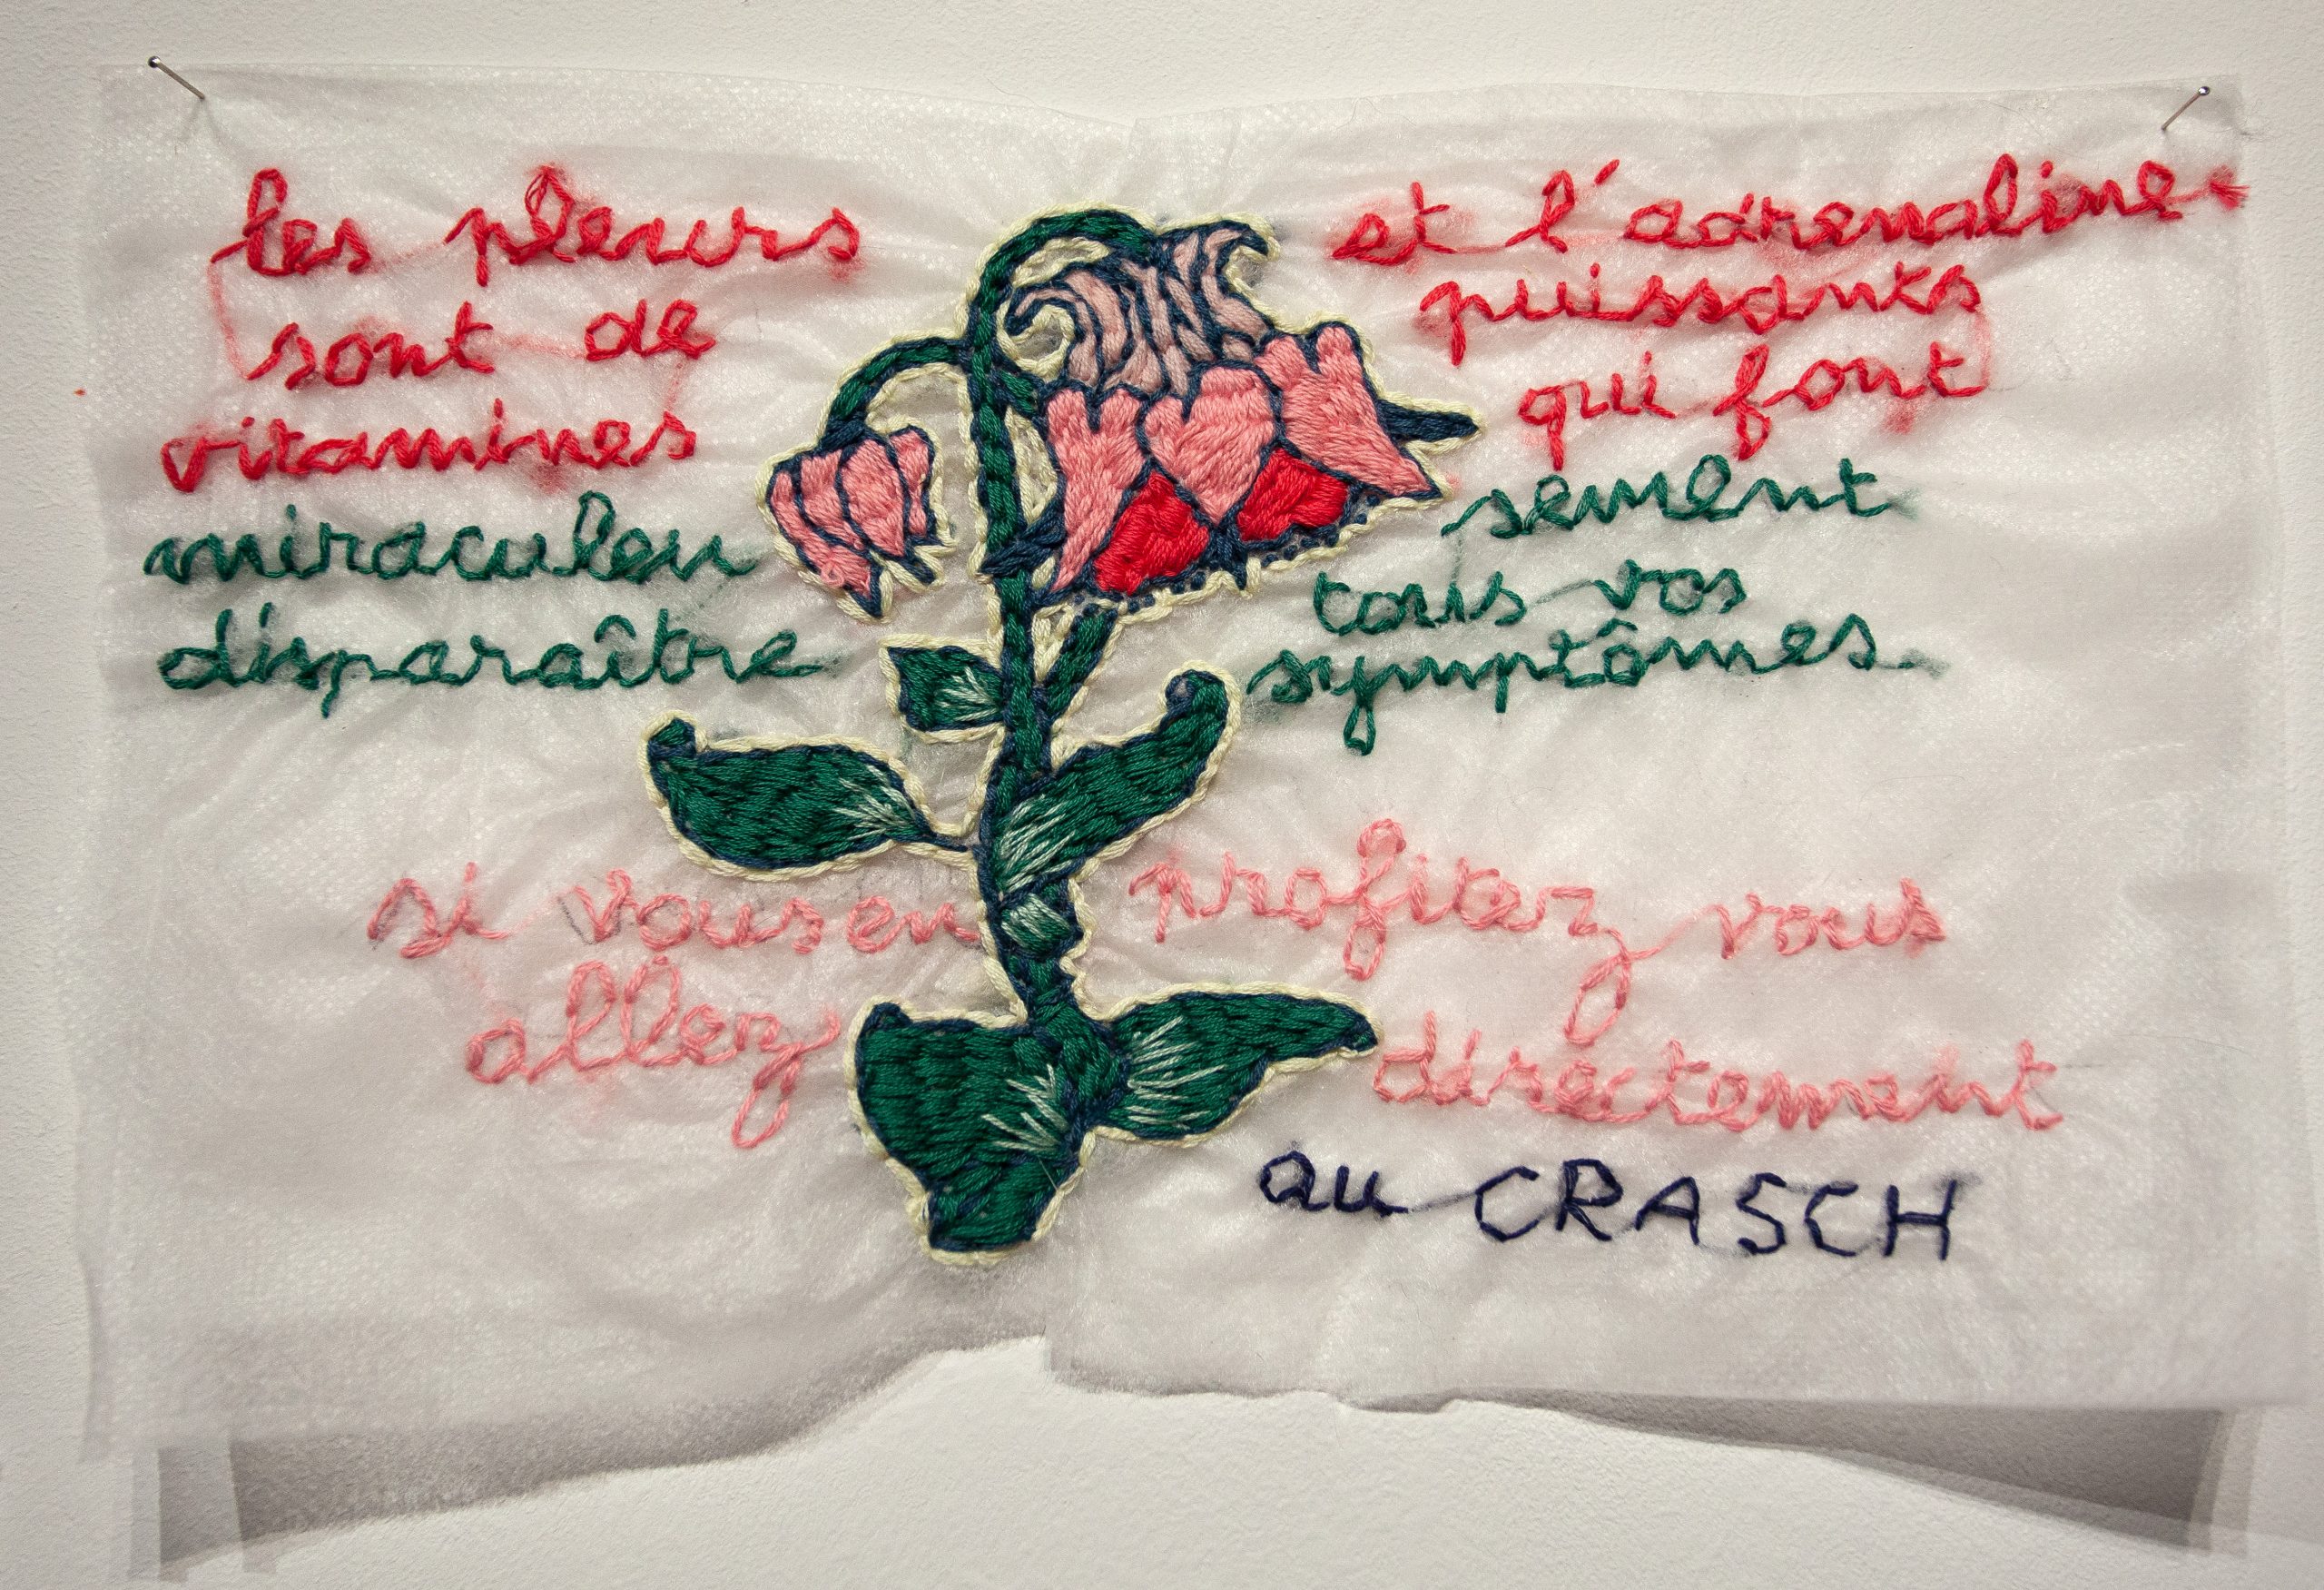 les pleurs et l'adrenaline
sont de puissants
vitamines qui font
miraculeu sement
disparaître tous vos
symptômes.
si vous en profitez vous
allez directement
au CRASCH